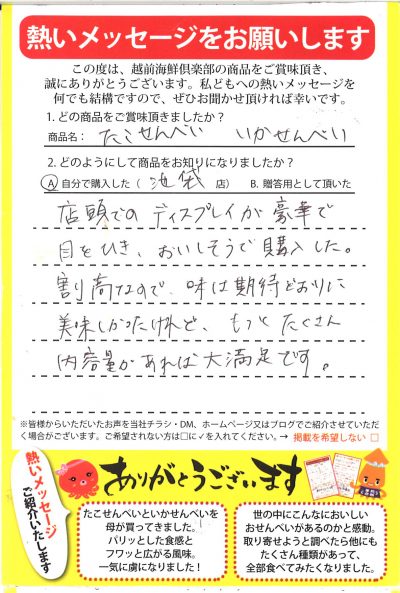 熱いメッセージをお願いします
この度は、越前海鮮倶楽部の商品をご賞味頂き、
誠にありがとうございます。私どもへの熱いメッセージを
何でも結構ですので、ぜひお聞かせ頂ければ幸いです。
1. どの商品をご賞味頂きましたか?
商品名: たこせんべい いかせんべい
2. どのようにして商品をお知りになりましたか?
A. 自分で購入した ( 池袋 店) B. 贈答用として頂いた
店頭でのディスプレイが豪華で
目をひき、おいしそうで購入した。
割高なので、味は期待どおりに
美味しかったけれど、もっとたくさん
内容量があれば大満足です。
※皆様からいただいたお声を当社チラシ・DM、ホームページ又はブログでご紹介させていただ
く場合がございます。ご希望されない方は□に✓を入れてください。→ 掲載を希望しない □
熱いメッセージ
ご紹介いたします
ありがとうございます
たこせんべいといかせんべいを
母が買ってきました。
パリッとした食感と
フワッと広がる風味。
一気に虜になりました!
世の中にこんなにおいしい
おせんべいがあるのかと感動。
取り寄せようと調べたら他にも
たくさん種類があって、
全部食べてみたくなりました。